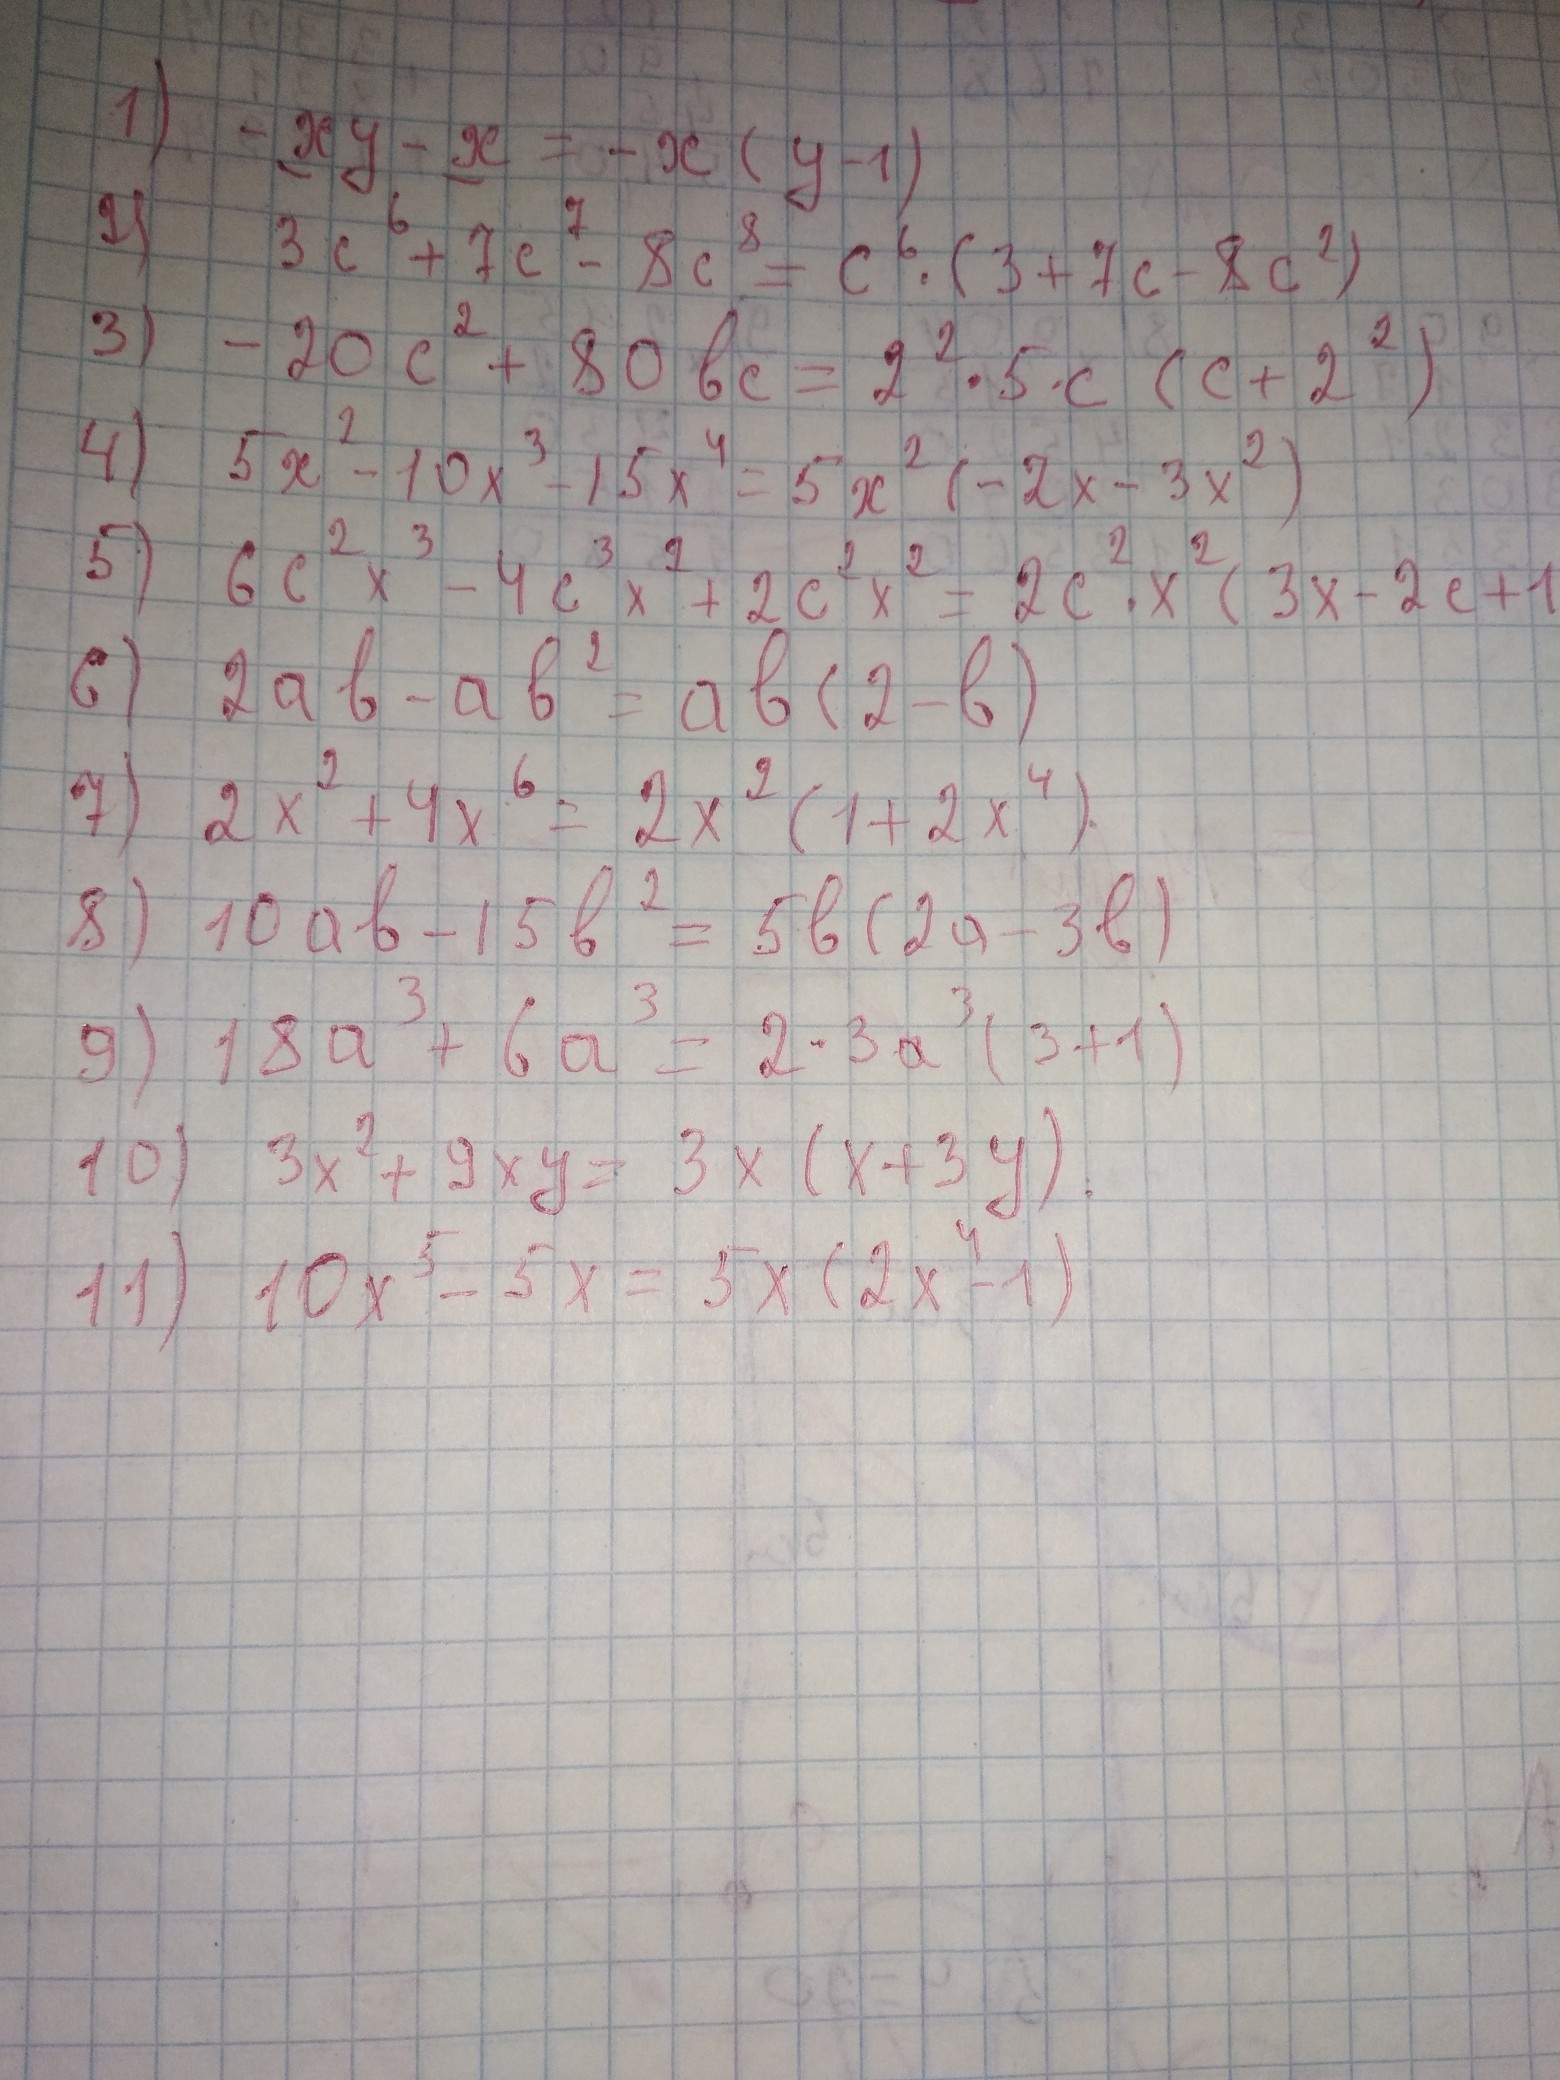 1) -xy - x = -x (y-1)
2) 3c⁶ + 7c⁷ - 8c⁸ = c⁶·(3+7c-8c²)
3) -20c² + 80bc = 2²·5·c (c+2²)
4) 5x² - 10x³ - 15x⁴ = 5x² (-2x-3x²)
5) 6c²x³ - 4c³x² + 2c²x² = 2c²·x² (3x-2c+1
6) 2ab - ab² = ab(2-b)
7) 2x² + 4x⁶ = 2x² (1+2x⁴).
8) 10ab - 15b² = 5b(2a-3b)
9) 18a³ + 6a³ = 2·3a³ (3+1)
10) 3x² + 9xy = 3x (x+3y).
11) 10x⁵ - 5x = 5x (2x⁴-1)